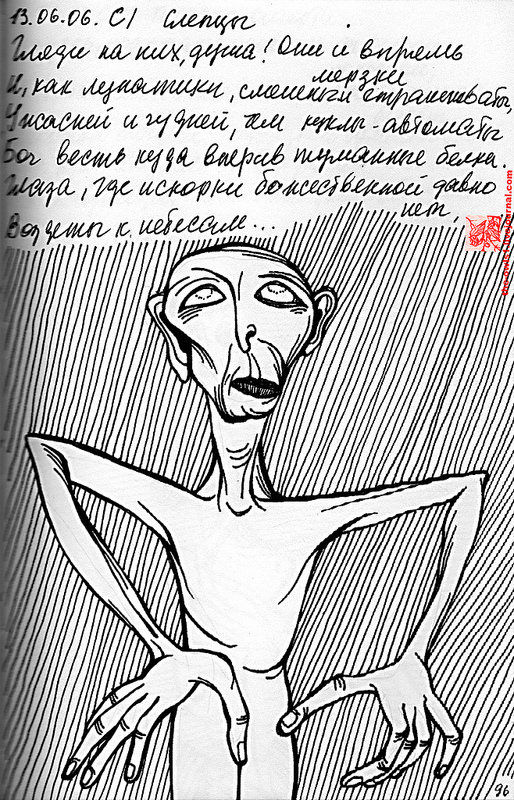 13.06.06. С/ Слепцы
Гляди на них, душа! Они и впрямь
мерзки
И, как лунатики, смешны и страшноваты,
Ужасней и чудней, чем куклы-автоматы
Бог весть куда вперив туманные белки.
Глаза, где искорки божественной давно
нет,
Воздеты к небесам...
96